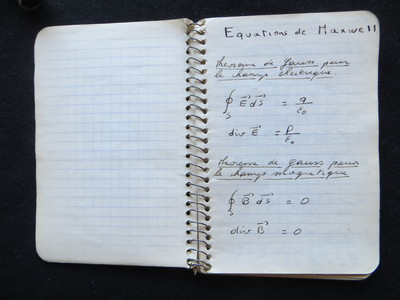 Equations de Maxwell
théorème de Gauss pour
le champs électrique.
∮_S E⃗ d⃗s = q/ε₀
div E⃗ = ρ/ε₀
théorème de Gauss pour
le champs magnétique
∮_S B⃗ d⃗s = 0
div B⃗ = 0